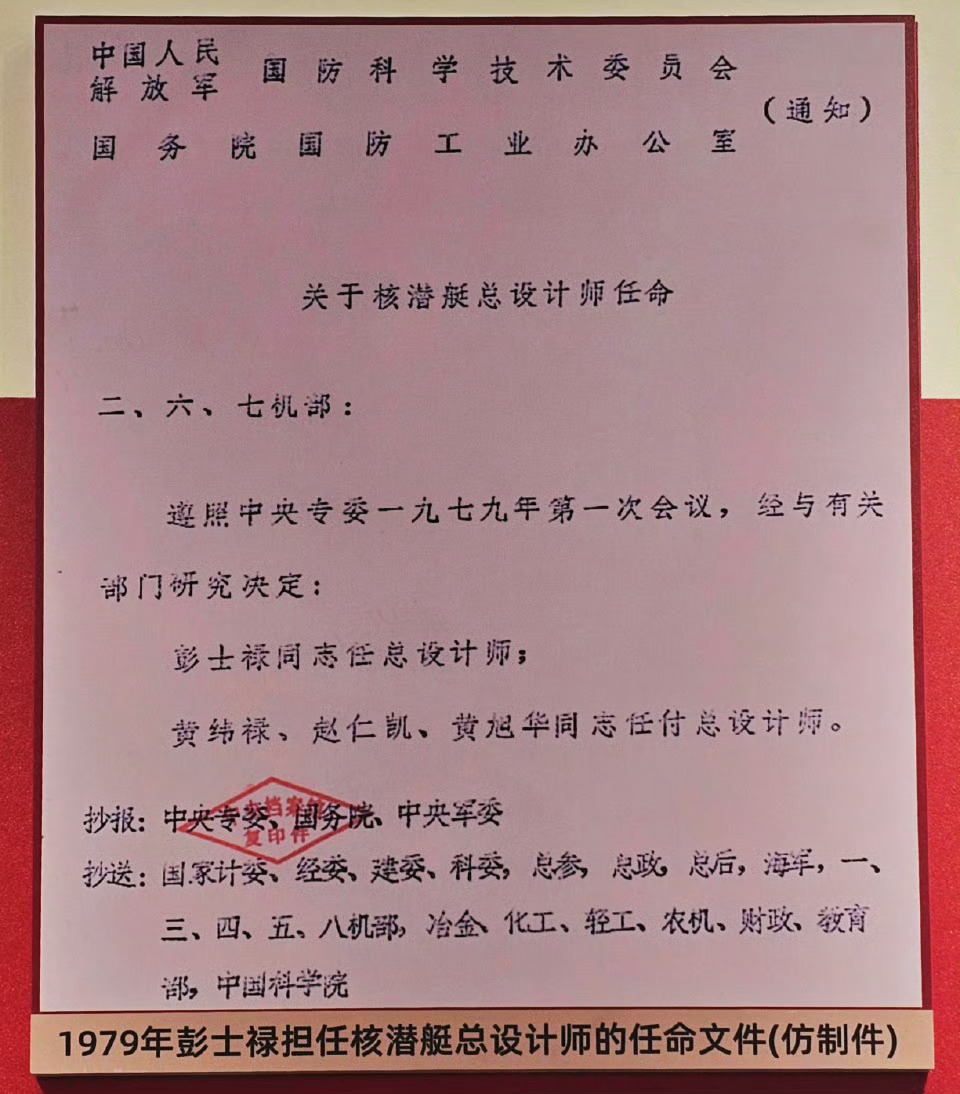 中国人民
解放军 国防科学技术委员会
（通知）
国务院国防工业办公室
关于核潜艇总设计师任命
二、六、七机部：
遵照中央专委一九七九年第一次会议，经与有关
部门研究决定：
彭士禄同志任总设计师；
黄纬禄、赵仁凯、黄旭华同志任付总设计师。
抄报：中央专委、国务院、中央军委
档案
复印件
抄送：国家计委、经委、建委、科委，总参，总政，总后，海军，一、
三、四、五、八机部，冶金、化工、轻工、农机、财政、教育
部，中国科学院
1979年彭士禄担任核潜艇总设计师的任命文件(仿制件)